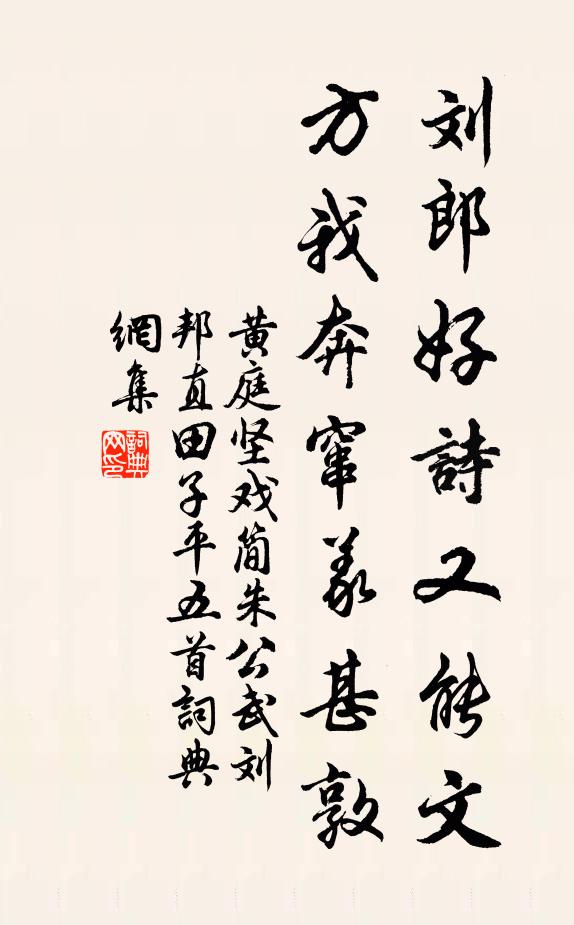 刘郎好詩又能文
方我奔窜義甚敦
黄庭坚戏简朱公武刘
邦直田子平五首詞典
網集
詞典
网印